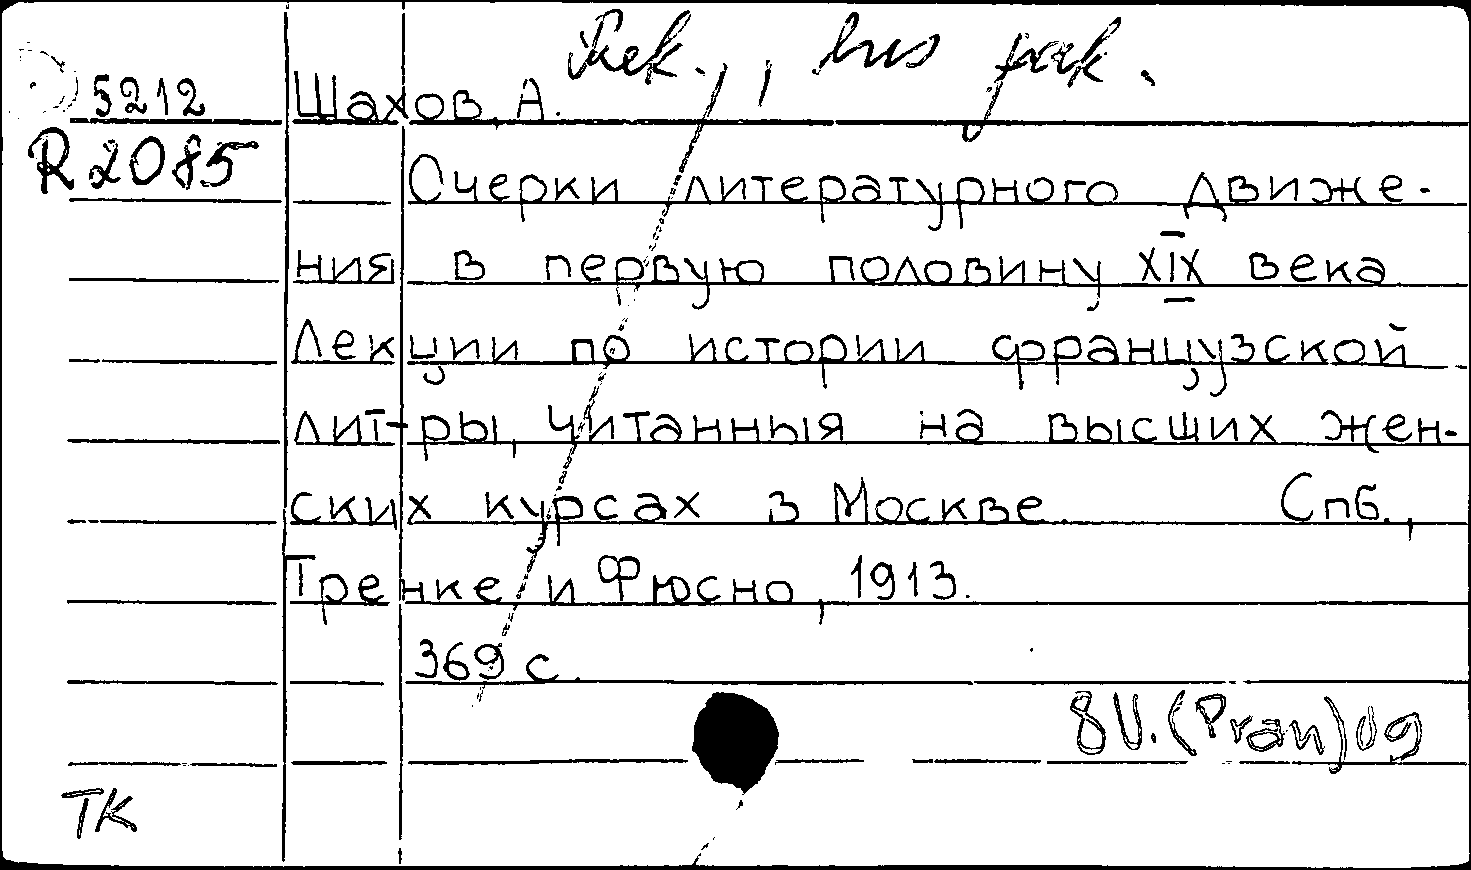 5212 Шахов, А.
R2085
Очерки литературного движе-
ния в первую половину XIX века
Лекции по истории французской
лит-ры, читанныя на высших жен-
ских курсах в Москве. Спб.,
Тренке и Фюсно, 1913.
369 с.
8U.(Pran)09
TK